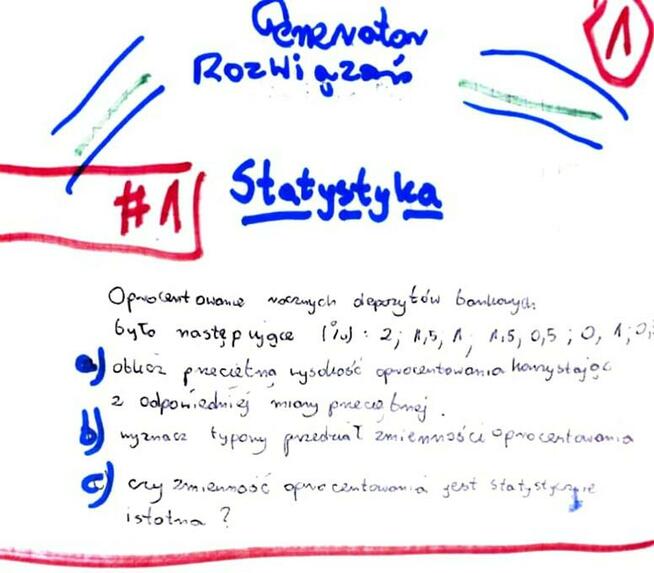 Generator
Rozwiązań
1
#1
Statystyka
Oprocentowanie rocznych depozytów bankowych
było następujące (%): 2; 1,5, 1; 1,5, 0,5; 0, 1; 0,
a) oblicz przeciętną wysokość oprocentowania korzystając
z odpowiedniej miary przeciętnej.
b) wyznacz typowy przedział zmienności oprocentowania
c) czy zmienność oprocentowania jest statystycznie
istotna ?